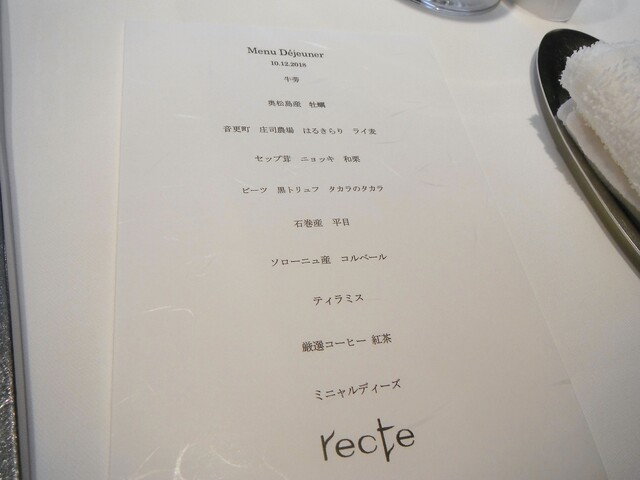 Menu Déjeuner
10.12.2018
牛蒡
奥松島産 牡蠣
音更町 庄司農場 はるきらり ライ麦
セップ茸 ニョッキ 和栗
ビーツ 黒トリュフ タカラのタカラ
石巻産 平目
ソローニュ産 コルベール
ティラミス
厳選コーヒー 紅茶
ミニャルディーズ
recte